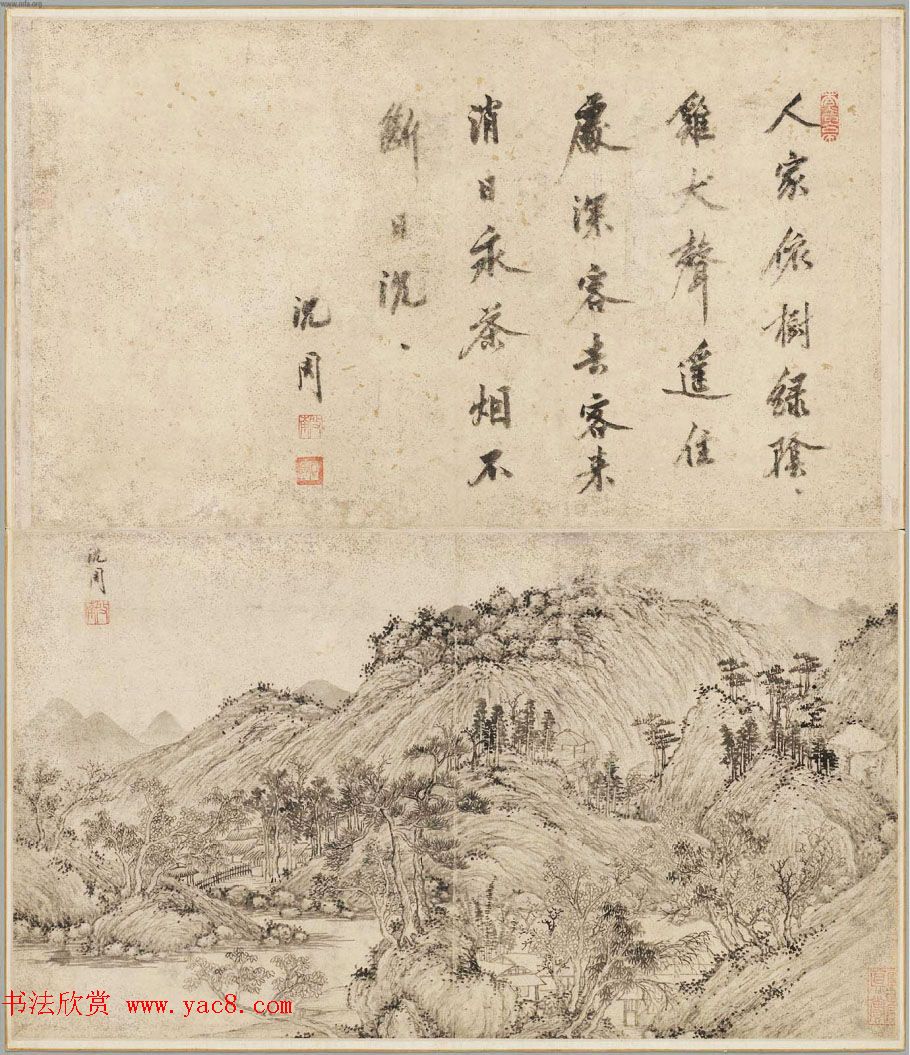 www.mfa.org
人家依樹緑陰、
雞犬聲遥住
處深客去客来
消日永茶烟不
斷日沉、
沈周
沈周
书法欣赏 www.yac8.com